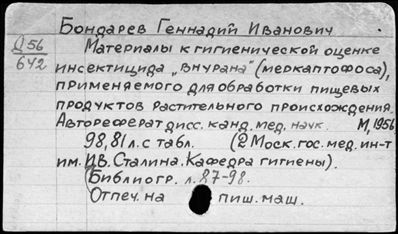 Бондарев Геннадий Иванович
Д56
642
Материалы к гигиенической оценке
инсектицида „внурана" (меркаптофоса),
применяемого для обработки пищевых
продуктов растительного происхождения.
Автореферат дисс. канд. мед. наук. М, 1956
98, 81 л. с табл. (2 Моск. гос. мед. ин-т
им. И.В. Сталина. Кафедра гигиены).
Библиогр. л. 87-98.
Отпеч. на пиш. маш.